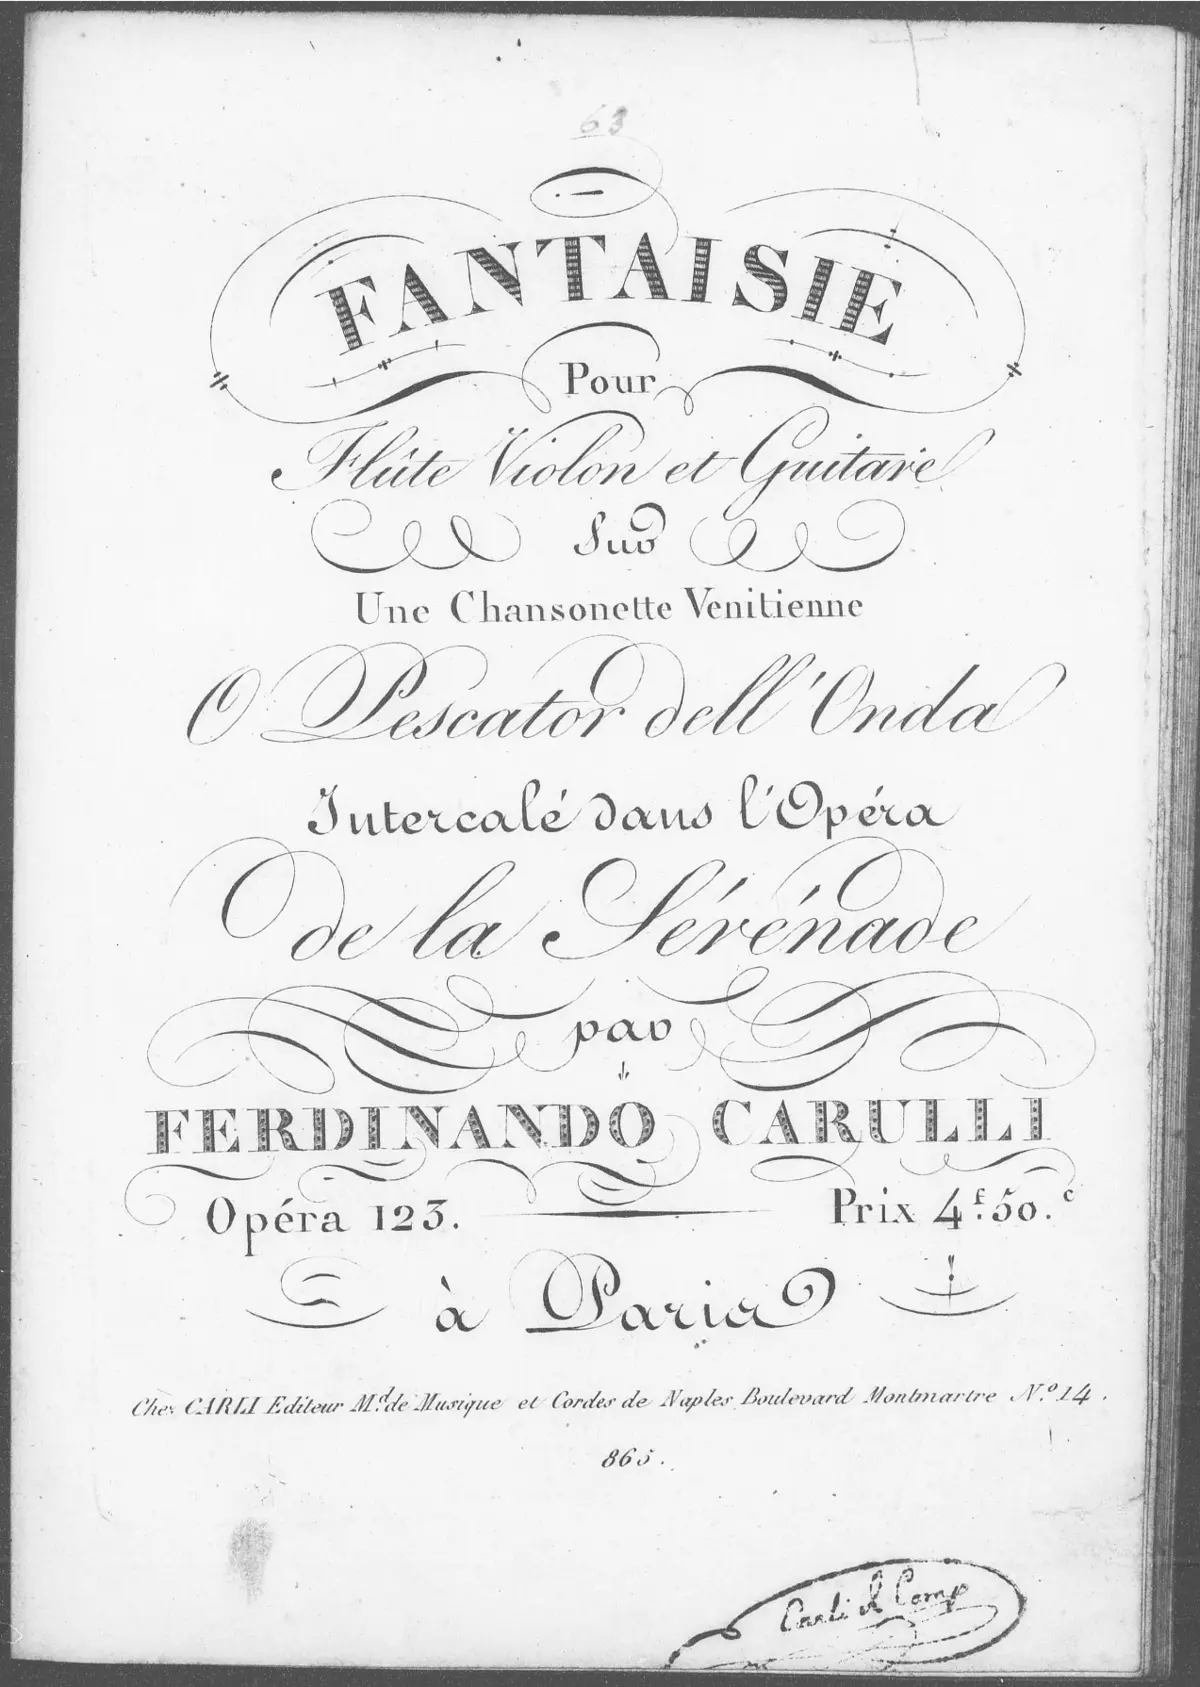 63
FANTAISIE
Pour
Flûte Violon et Guitare
Sur
Une Chansonette Venitienne
O Pescator dell'Onda
Intercalé dans l'Opéra
de la Sérénade
par
FERDINANDO CARULLI
Opéra 123. Prix 4f. 50.c
à Paris
Chez CARLI Editeur Md. de Musique et Cordes de Naples Boulevard Montmartre No. 14.
865.
Carli et Comp